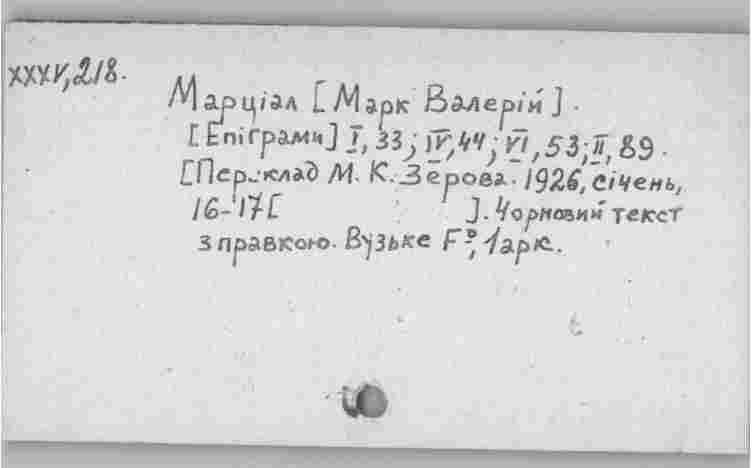 XXXV, 218.
Марціал [Марк Валерій].
[Епіграми] I, 33; IV, 44; VI, 53; II, 89.
[Переклад М. К. Зерова. 1926, січень,
16-17[ ]. Чорновий текст
з правкою. Вузьке F°, 1 арк.